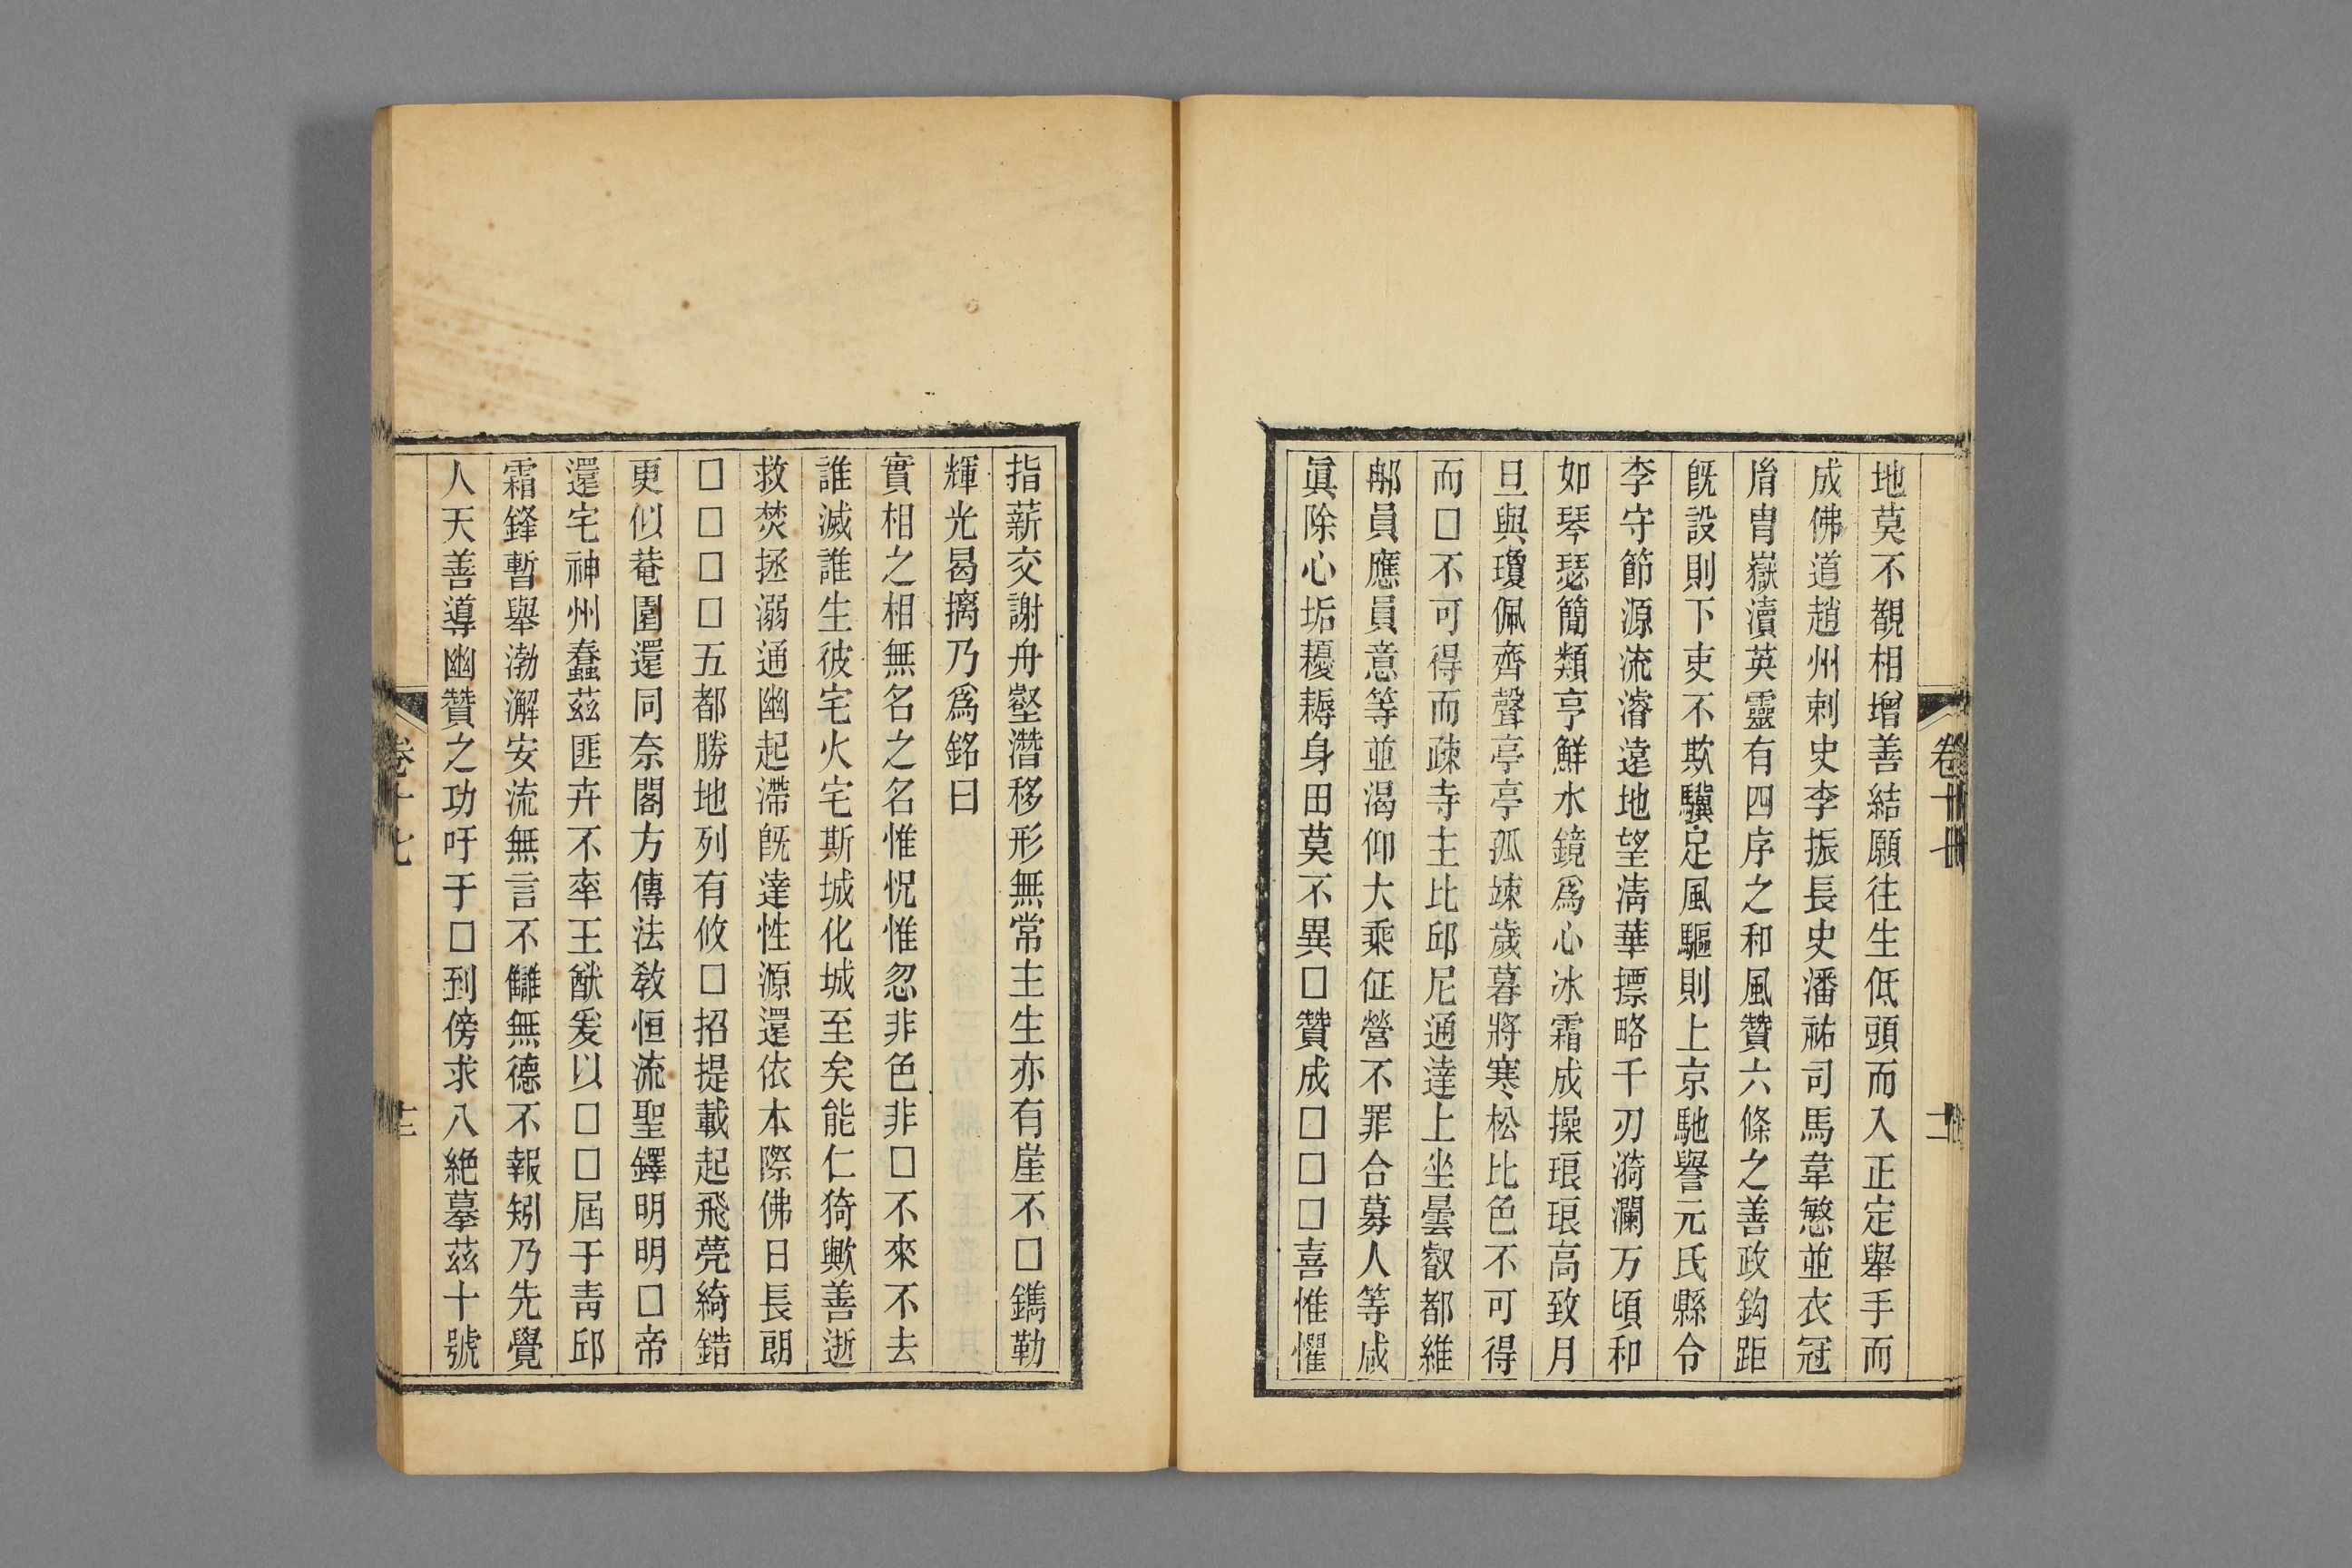 地莫不觀相增善結願往生低頭而入正定舉手而
成佛道趙州刺史李振長史潘祐司馬韋慜並衣冠
胄嶽瀆英靈有四序之和風贊六條之善政鈎距
旣設則下吏不欺驥足風驅則上京馳譽元氏縣令
李守節源流濬遠地望淸華摽略千刃漪瀾万頃和
如琴瑟簡類亨鮮水鏡爲心冰霜成操琅琅高致月
旦與瓊佩齊聲亭亭孤竦歲暮將寒松比色不可得
而□不可得而疎寺主比邱尼通達上坐曇叡都維
郍員應員意等並渴仰大乘征營不罪合募人等咸
眞除心垢耰耨身田莫不異□贊成□□□喜惟懼
指薪交謝舟壑潛移形無常主生亦有崖不□鐫勒
輝光曷摛乃爲銘曰
實相之相無名之名惟怳惟忽非色非□不來不去
誰滅誰生彼宅火宅斯城化城至矣能仁猗歟善逝
救焚拯溺通幽起滯旣達性源還依本際佛日長朗
□□□□五都勝地列有攸□招提載起飛甍綺錯
更似菴園還同奈閣方傳法教恒流聖鐸明明□帝
還宅神州蠢茲匪卉不率王猷爰以□□屆于靑邱
霜鋒暫舉渤澥安流無言不讎無德不報矧乃先覺
人天善導幽贊之功吁于□到傍求八絶摹茲十號
卷十七